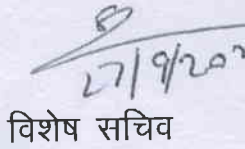 27/9/202
विशेष सचिव